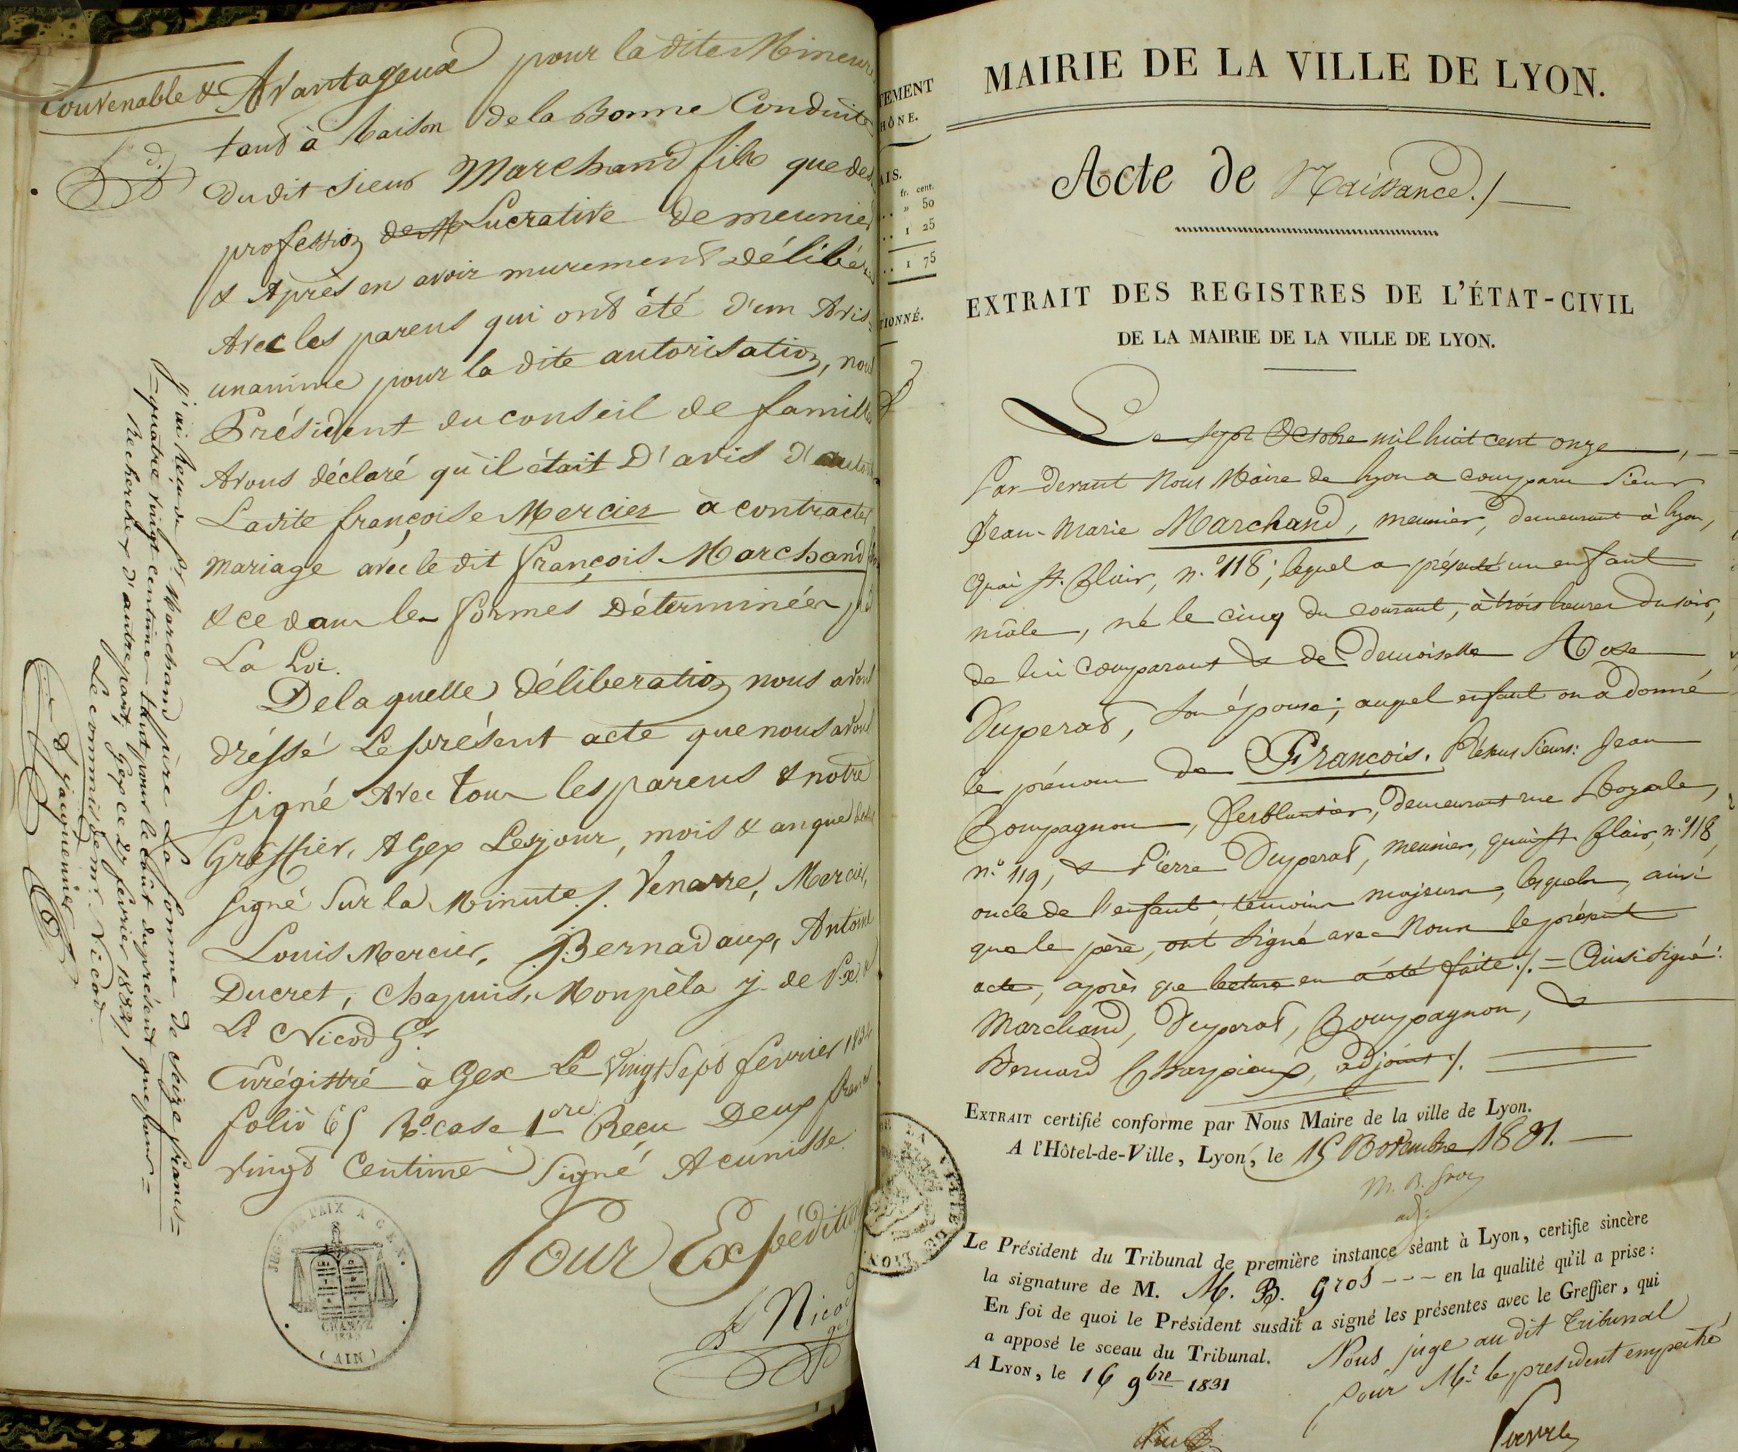 convenable & Avantageux pour ladite Mineure
tant à Raison de la Bonne Conduite
Dudit Sieur Marchand fils que de sa
profession Lucrative de meunier
& Après en avoir murement délibéré
Avec les parens qui ont été d'un Avis
unanime pour la dite autorisation, nous
Président du conseil de famille
Avons déclaré qu'il était D'avis D'autoriser
Ladite françoise Mercier a contracter
mariage avec le dit françois Marchand fils
& ce dans les formes Déterminées par
La Loi.
De laquelle délibération nous avons
dréssé Le présent acte que nous avons
signé Avec tous les parens & notre
Greffier, A Gex Les jour, mois & an que dessus
signé Sur la Minute ./. Venarre, Mercier,
Louis Mercier, J. Bernadaux, Antoine
Ducret, Chapuis, Monpéla j. de Px &
Lt Nicod Gr.
Enrégistré à Gex Le Vingt Sept fevrier 1832
folio 65 Ro. case 1ere Reçu Deux francs
vingt Centimes Signé Acunisse.
Pour Expédition
Lt Nicod
gr
J'ai Reçu de Sr Marchand père La Somme de Seize francs=
=quatre vingt centimes tant pour le cout du présent que pour=
Recherches d'autre part, Gex ce 27 fevrier 1832 /
Le commis de mr. Nicod
Jacquemier
JUST. DE PAIX A GEX.
LA CHARTE
1830
(AIN)
TEMENT
HÔNE.
AIS.
fr. cent.
. . » 50
. . 1 25
. . 1 75
TIONNÉ.
MAIRIE DE LA VILLE DE LYON.
Acte de Naissance./
EXTRAIT DES REGISTRES DE L'ÉTAT-CIVIL
DE LA MAIRIE DE LA VILLE DE LYON.
Le sept Octobre mil huit cent onze,
Par-devant Nous Maire de Lyon a comparu Sieur
Jean-Marie Marchand, meunier, demeurant à Lyon,
Quai St. Clair, n.º 118; lequel a présenté un enfant
mâle, né le cinq du courant, à trois heures du soir,
de lui comparant & de Demoiselle Rose
Duperat, son épouse; auquel enfant on a donné
le prénom de François. Présens Sieurs: Jean
Compagnon, ferblantier, demeurant rue Royale,
n.º 119, & Pierre Duperat, meunier, quai St Clair, n.º 118,
oncle de l'enfant, témoins majeurs, lesquels, ainsi
que le père, ont signé avec Nous le présent
acte, après que lecture en a été faite ./. = Ainsi signé:
Marchand, Duperat, Compagnon, &
Bernard Charpieux, adjoint ./.
EXTRAIT certifié conforme par Nous Maire de la ville de Lyon.
A l'Hôtel-de-Ville, Lyon, le 15 Novembre 1831.
M. B. Gros
adj.
Le Président du Tribunal de première instance séant à Lyon, certifie sincère
la signature de M. M. B. Gros --- en la qualité qu'il a prise :
En foi de quoi le Président susdit a signé les présentes avec le Greffier, qui
a apposé le sceau du Tribunal. Nous juge au dit Tribunal
A LYON, le 16 9bre 1831 pour Mr le president empeché